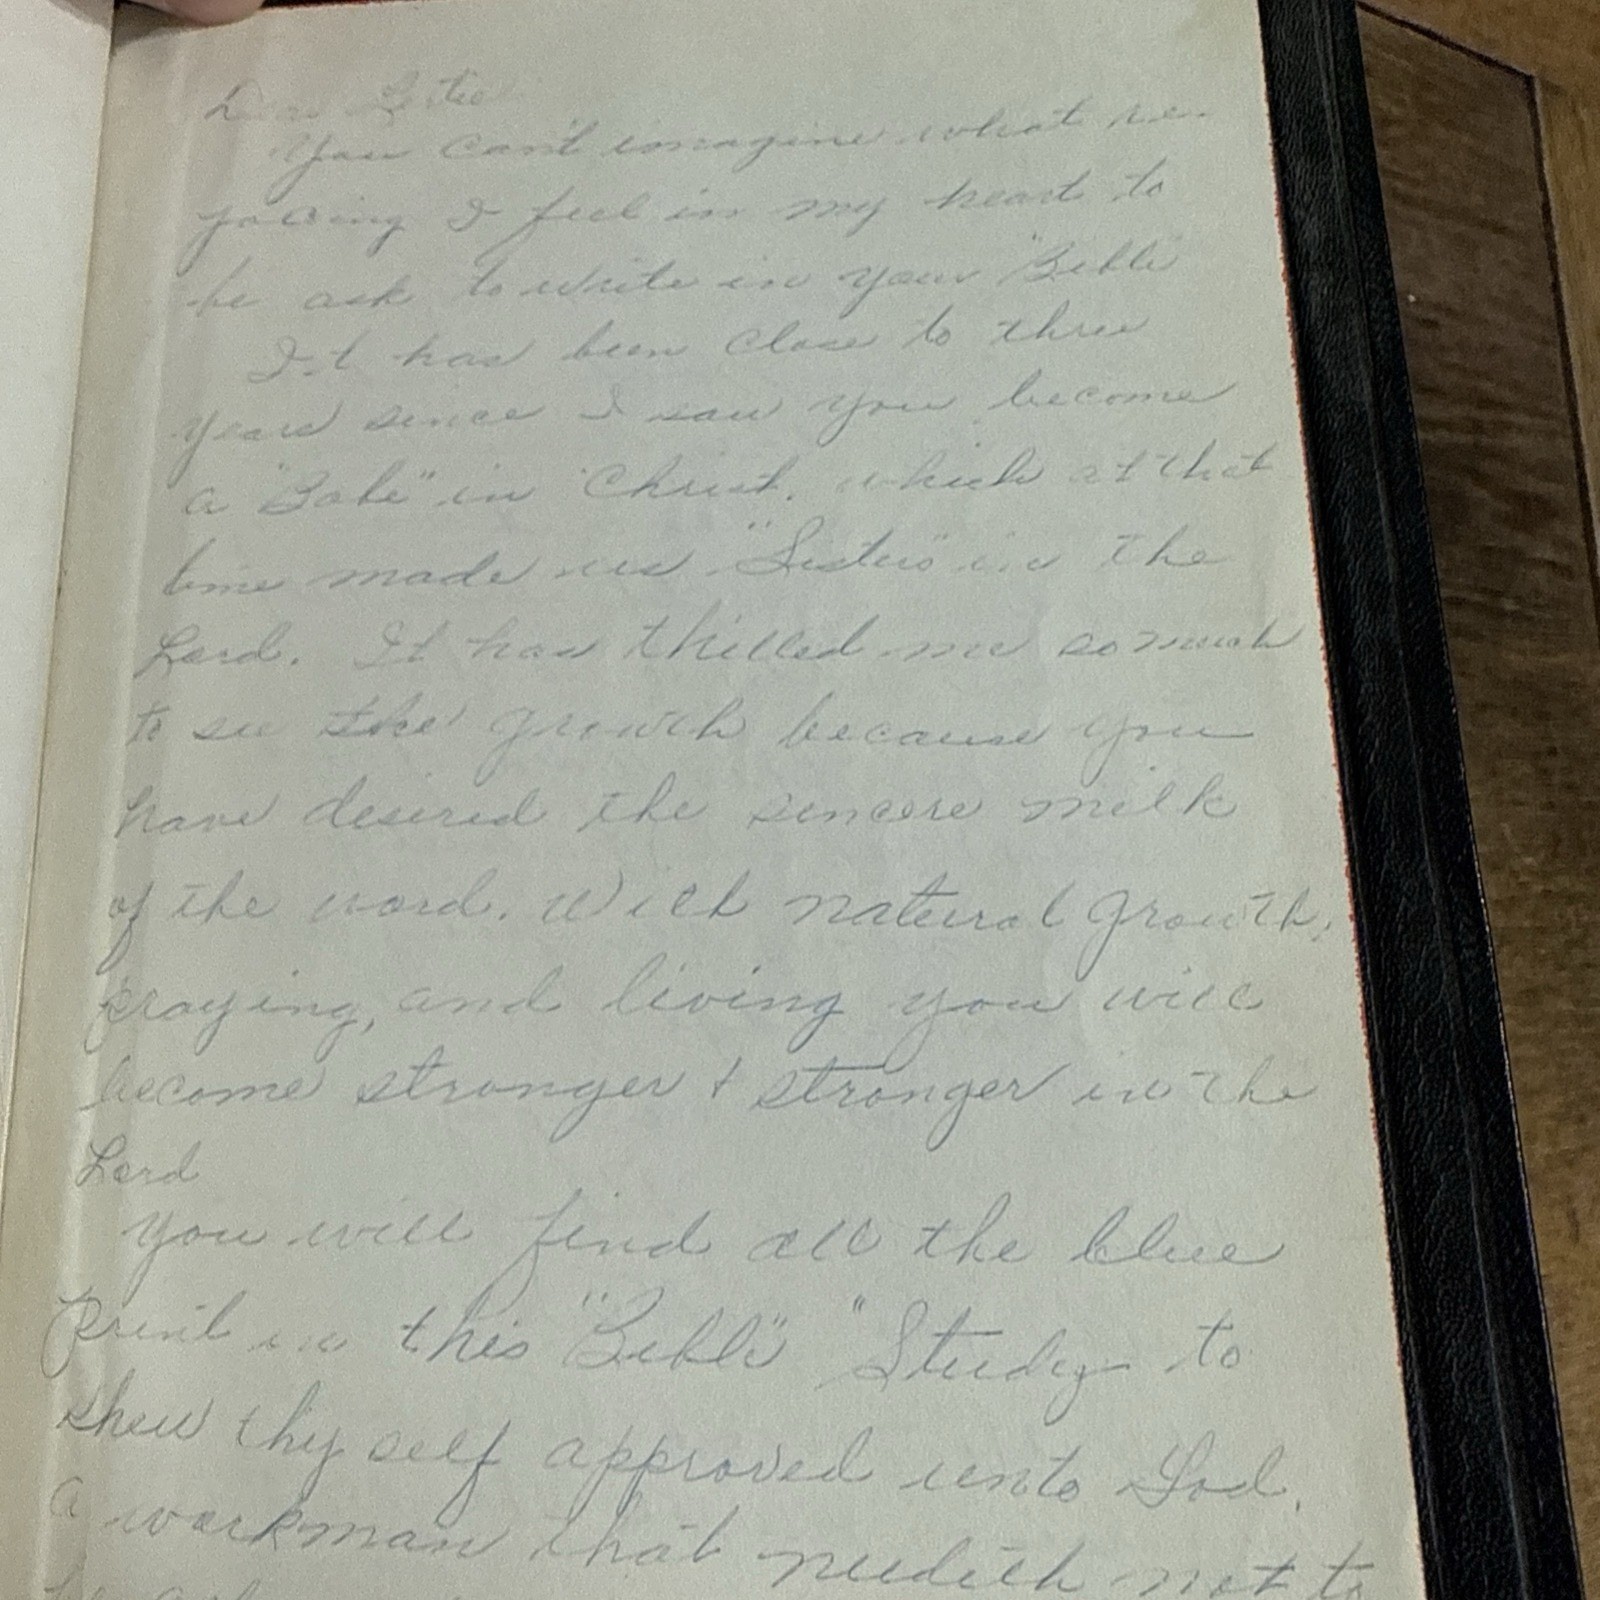 Dear
You can't imagine what re-
joicing I feel in my heart to
be ask to write in your "Bible"
It has been close to three
years since I saw you become
a "Babe" in Christ. which at that
time made us "Sisters" in the
Lord. It has thrilled me so much
to see the growth because you
have desired the sincere milk
of the word. With natural growth,
praying, and living you will
become stronger + stronger in the
Lord
You will find all the blue
print in this "Bible" "Study to
shew thy self approved unto God.
a workman that needeth not to
be